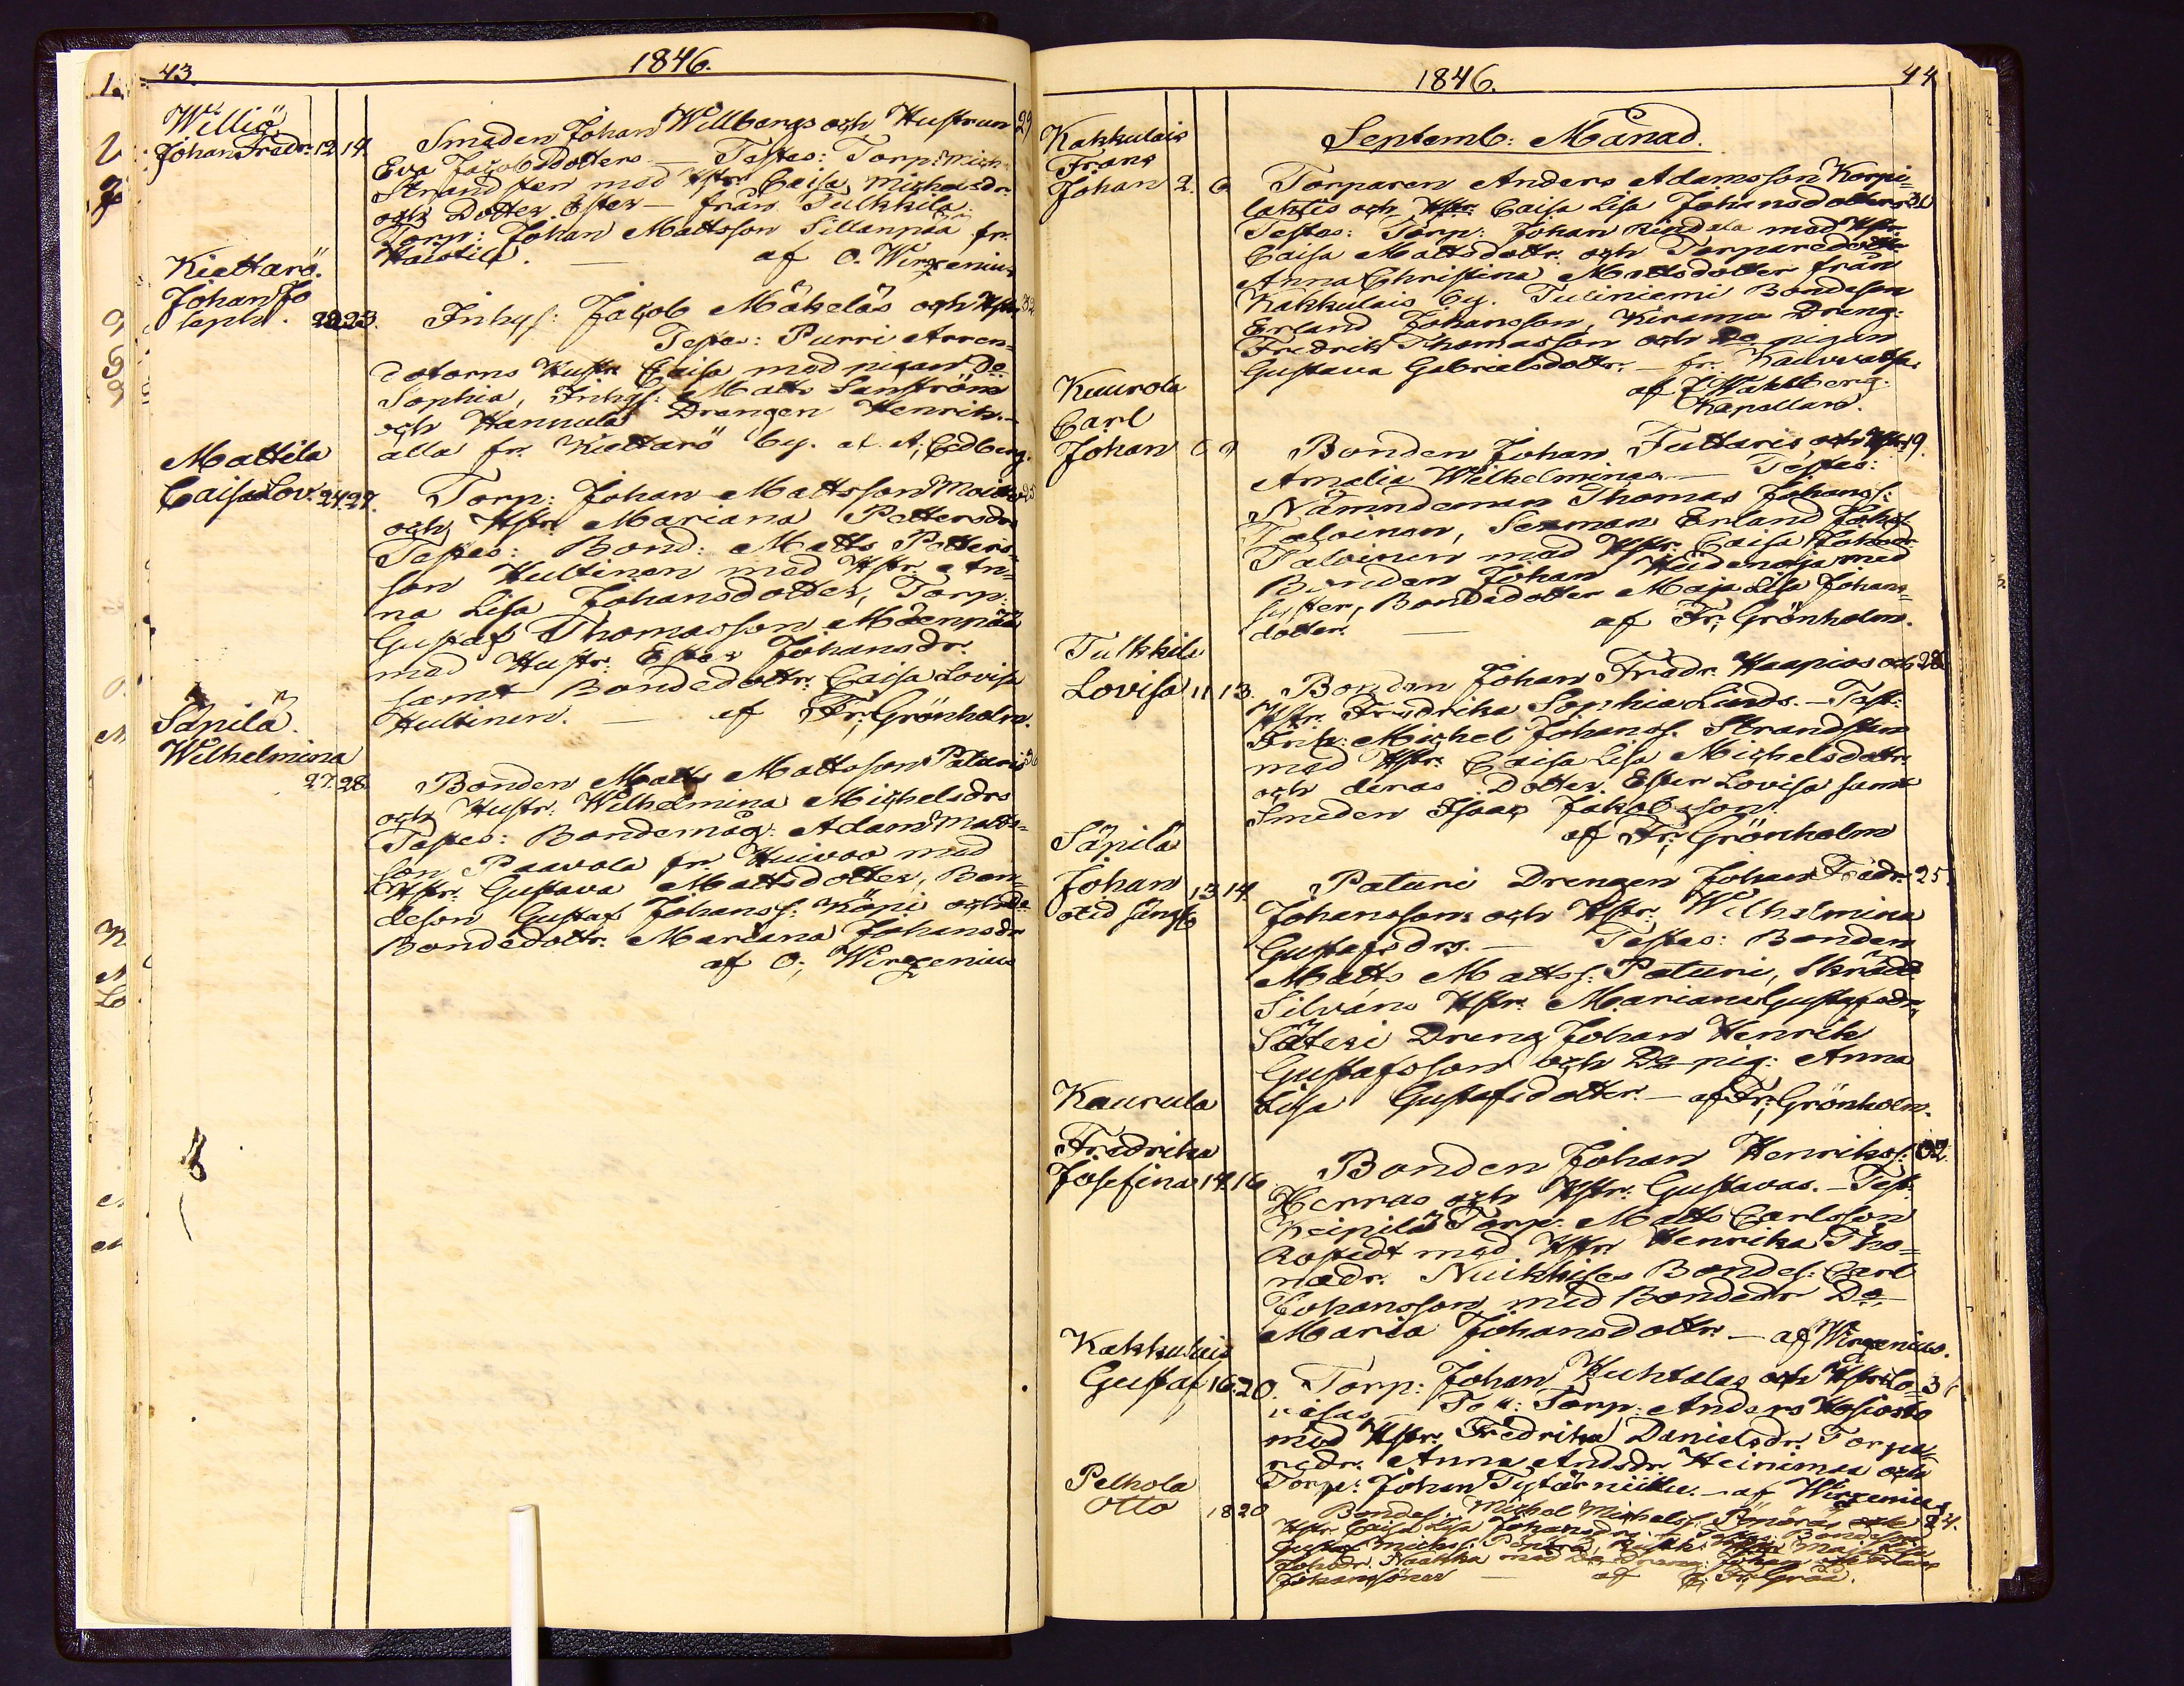 43.
1846.
Williö
Johan Fredr. 12. 14.
Smeden Johan Willbergs och Hustrun 29
Eva Jacobsdotters — Testes: Torp: Mich:
Strandsten med Hstr. Caisa Michelsdr.
och Dotter Ester — från Tulkkila.
Torp: Johan Mattsson Sillanpää fr.
Haistila. — af O. Wirzenius
Kiettarö.
Johan Jo
seph. 22. 23.
Inhys: Jacob Mäkeläs och Hstr. 32
Testes: Purri Arren=
datorns Hustr. Caisa med pigan Do
Sophia, Inhys: Matts Sanström
och Hannula Drengen Henrik. —
alla fr. Kiettarö by. af A. Edberg.
Mattila
Caisa Lov. 24. 27.
Torp: Johan Mattsson 25
och Hstr. Mariana Pettersdrs
Testes: Bond: Matts Petters=
son Hultinen med Hstr. An=
na Lisa Johansdotter, Torp:
Gustaf Thomasson Mäenpää
med Hustr. Ester Johansdr.
samt Bondedottr. Caisa Lovisa
Hultinen. — af Fr. Grönholm.
Säpilä.
Wilhelmina
27. 28.
Bonden Matts Mattsson Paturis 36
och Hustr. Wilhelmina Michelsdrs
Testes: Bondemåg: Adam Matts=
son Paavola fr. Huivoo med
Hstr. Gustava Mattsdotter, Bon=
deson Gustaf Johanss: Köpi och
Bondedottr. Mariana Johansdr
af O. Wirzenius
1846.
44
Septemb: Månad.
Kakkulais
Frans
Johan 2. 6
Torparen Anders Adamsson Korpi=
lahtis och Hstr. Caisa Lisa Johansdotters 30
Testes: Torp: Johan Rindala med Hstr.
Caisa Mattsdottr. och Torparedottr
Anna Christina Mattsdotter från
Kakkulais by. Tuliniemi Bondeson
Erland Johansson, Kirama Dreng:
Fredrik Thomasson och Do pigan
Gustava Gabrielsdottr. — fr.
af Wahlberg.
Kapellan.
Kuurola
Carl
Johan
Bonden Johan Tuttaris och Hstr. 19.
Amalia Wilhelminas — Testes:
Nämndeman Thomas Johanss:
Talvinen, Sexman Erland Johss
Talvinen med Hstr. Caisa Johsdr
Bonden Johan Hüdenoja med
Syster, Bondedotter Maja Lisa Johans=
dotter. — af Fr. Grönholm.
Tulkkila
Lovisa 11 13.
Bonden Johan Fredr. Haapios och 28
Hstr. Fredrika Sophia Linds. — Test:
Michel Johanss. Strandsten
med Hstr. Caisa Lisa Michelsdottr.
och deras Dotter Ester Lovisa samt
Smeden Isaac Jakobsson.
af Fr. Grönholm
Säpilä
Johan 13 14
Paturi Drengen Johan Fredr. 25.
Johanssons och Hstr. Wilhelmina
Gustafsdrs. — Testes: Bonden
Matts Mattss: Paturi, Skrädd
Silvans Hstr. Mariana Gustafsdr,
Säteri Dreng Johan Henrik
Gustafsson och Do pig: Anna
Lisa Gustafsdotter. — af Fr. Grönholm.
Kaurula
Fredrika
Josefina 14. 16
Bonden Johan Henrikss: 32.
Herras och Hstr. Gustavas. — Test:
Keipilä Torp. Matts Carlsson
Rostedt med Hstr. Henrika Tho=
madr. Nuikkises Bondes: Carl
Johansson med Bondedr Do
Maria Johansdottr. — af Wirzenius.
Kakkulais
Gustaf 16. 20.
Torp: Johan Huhtalas och Hstr. Lo=
visas — Test: Torp: Anders Hosiosto
med Hstr. Fredrika Danielsdr. Torpa=
redr. Anna Andsdr Heinimaa och
Torp: Johan Tyttärniittu. — af Wirzenius
Pelhola
Otto 18 20
Bondes: Michel Michelss: Pänäräs och 24.
Hstr. Caisa Lisa Johansdrs. — Testes: Bondeson
Gustaf Michss: Maja Lisa
Johsdr. Naakka med Do Dreng: Johan
Johanssöner — af Fr. Grön.